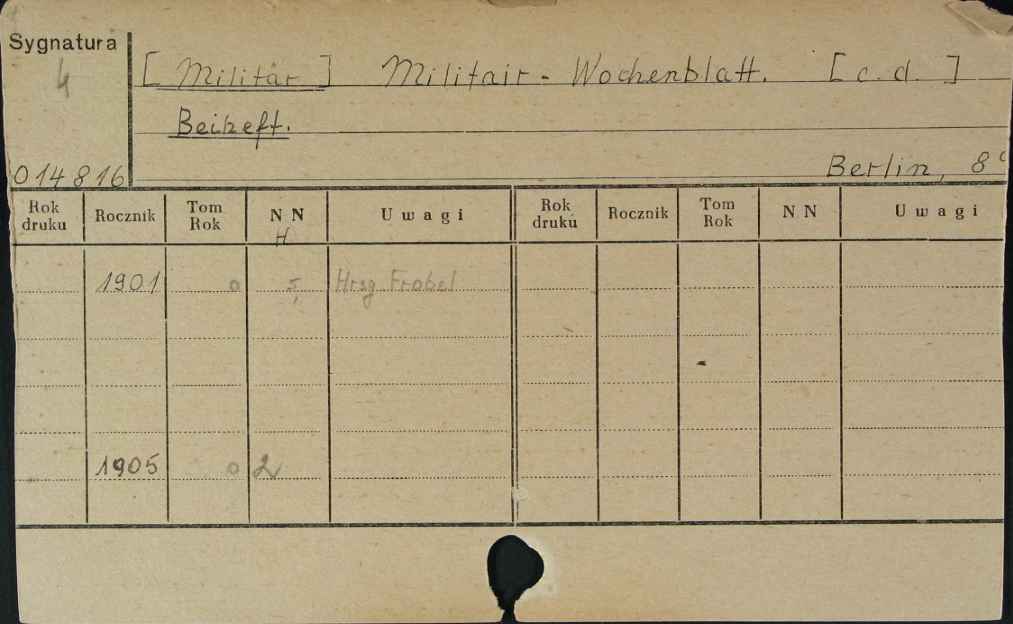 Sygnatura
4
[ Militär ] Militair - Wochenblatt. [ c. d. ]
Beiheft.
014816
Berlin, 8°
Rok druku Rocznik Tom Rok N N U w a g i Rok druku Rocznik Tom Rok N N U w a g i
H
1901 o 5, Hrsg. Frobel
1905 o 2